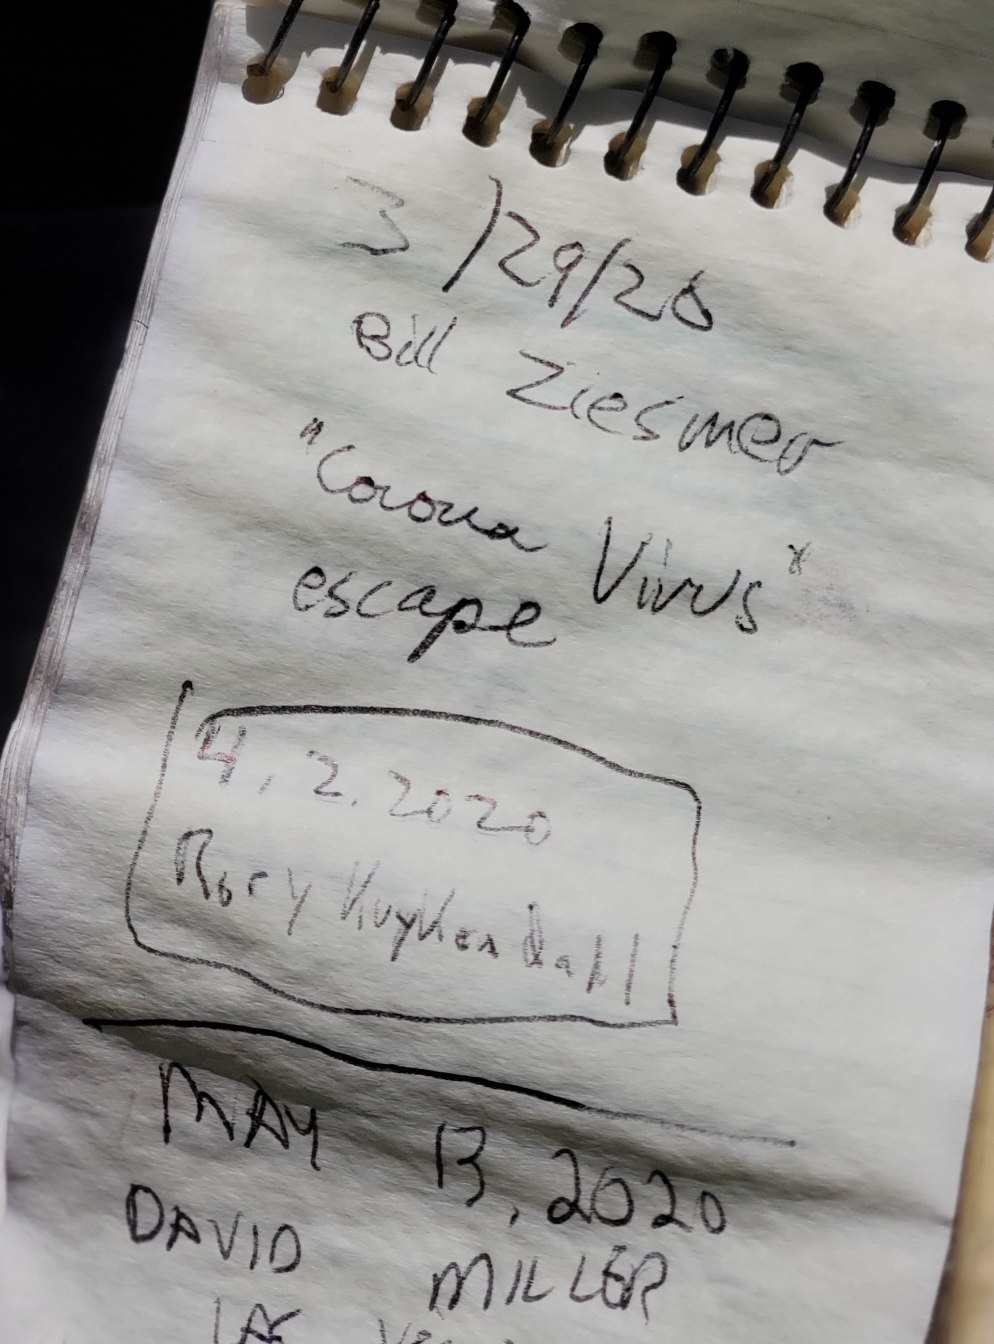 3/29/20
Bill Ziesmer
"Corona Virus"
escape
4.2.2020
Rory Kuykendall
MAY 13, 2020
DAVID MILLER
LAS